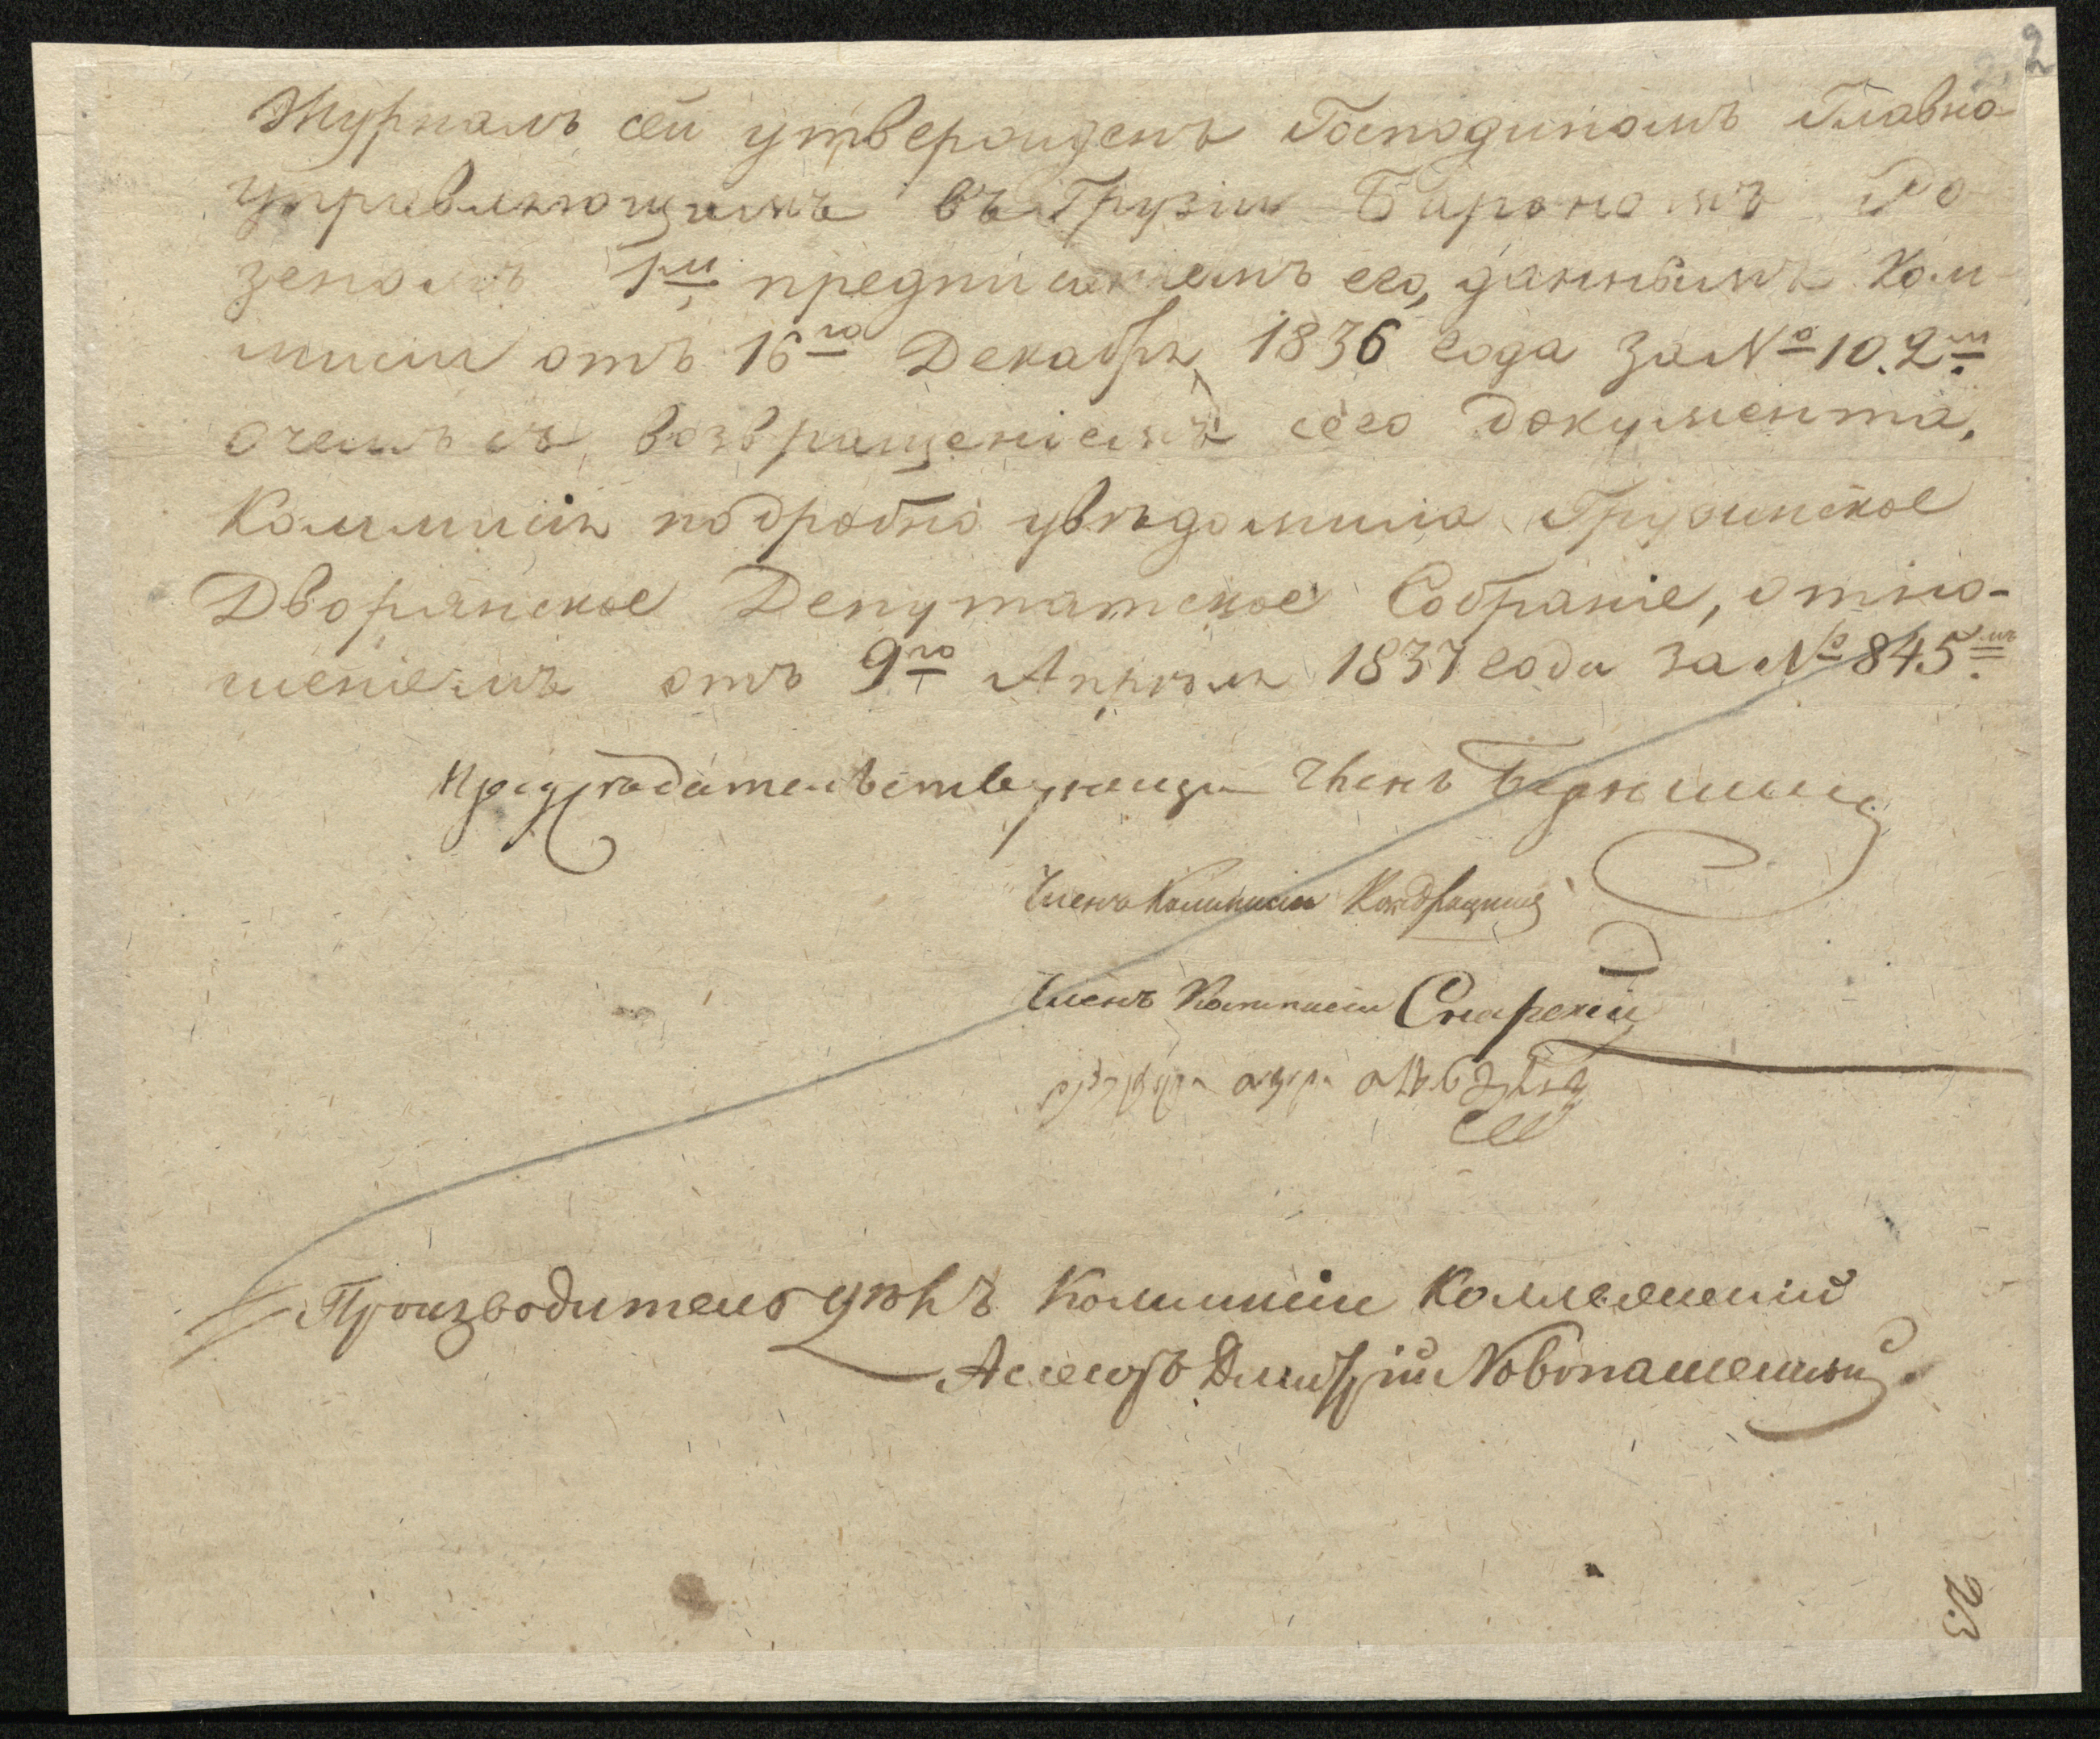 2
Журналъ сей утвержденъ Господиномъ Главно-
управляющимъ въ Грузіи Барономъ Ро
зеномъ 1м предписаніемъ его, даннымъ Ком-
мисіи отъ 16го Декабря 1836 года за № 10. 2м
о чемъ съ возвращеніемъ сего документа,
Коммисія подробно увѣдомила Грузинское
Дворянское Депутатское Собраніе, отно-
шеніемъ отъ 9го Апрѣля 1837 года за № 845мъ
Председательствующи Членъ
Членъ Коммисіи
Членъ Коммисіи
Производитель дѣлъ Коммисіи Коллежскій
Асесоръ Дмитрій Новопашенный
23